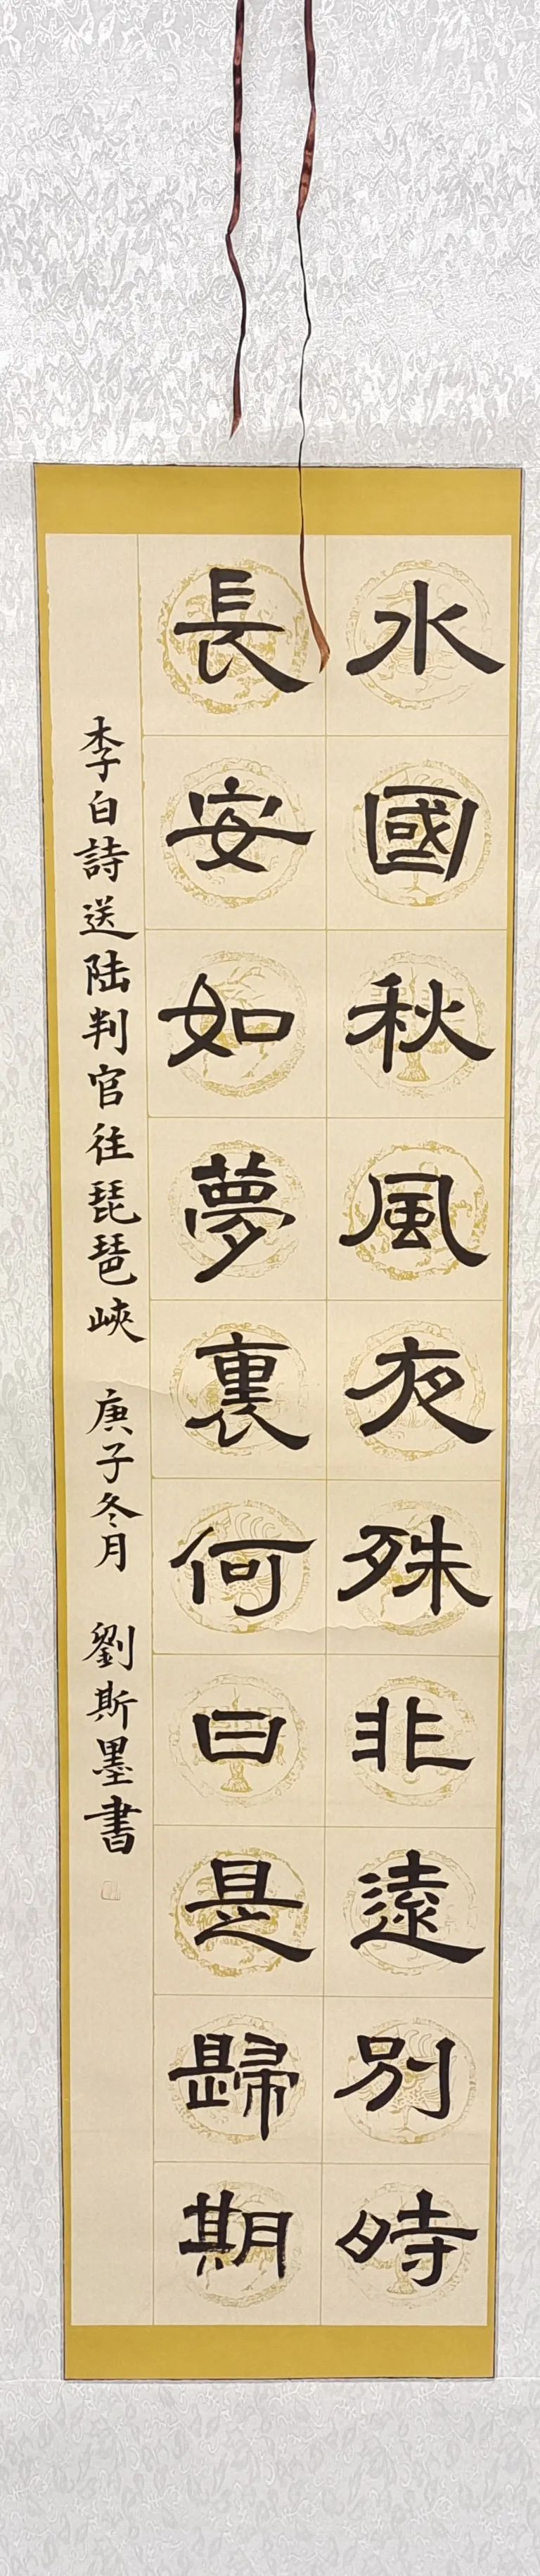 水國秋風夜殊非遠別時
長安如夢裏何日是歸期
李白詩送陆判官往琵琶峽 庚子冬月 劉斯墨書